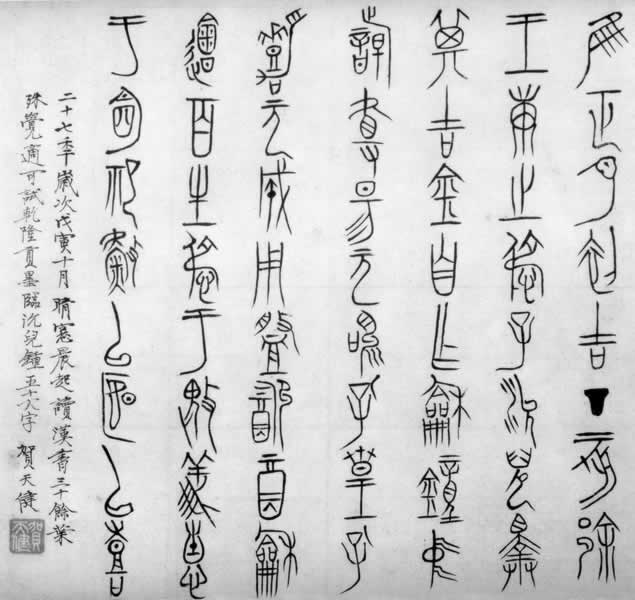 隹正月初吉丁亥徐
王庚之淑子沇兒擇
其吉金自乍龢鐘中
翰且昜元鳴孔皇孔
嘉元成用盤飲酉龢
會百生淑于威儀惠
于盟祀𩵦以宴以喜
二十七年歲次戊寅十月晴窗晨起讀漢書三十餘葉
殊覺適可試乾隆貢墨臨沇兒鐘五十六字 賀天健
賀天健